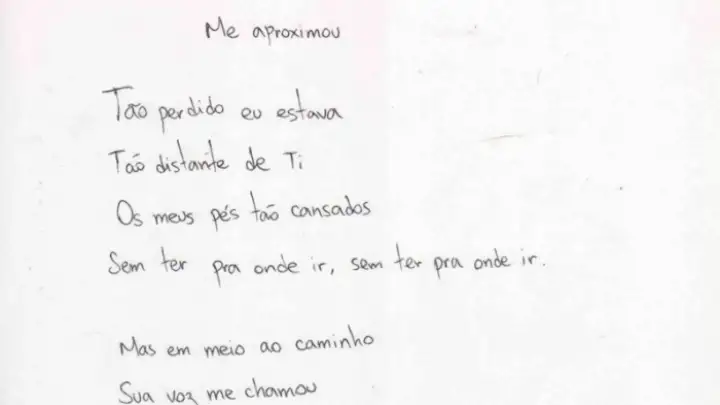 Me aproximou
Tão perdido eu estava
Tão distante de Ti
Os meus pés tão cansados
Sem ter pra onde ir, sem ter pra onde ir.
Mas em meio ao caminho
Sua voz me chamou